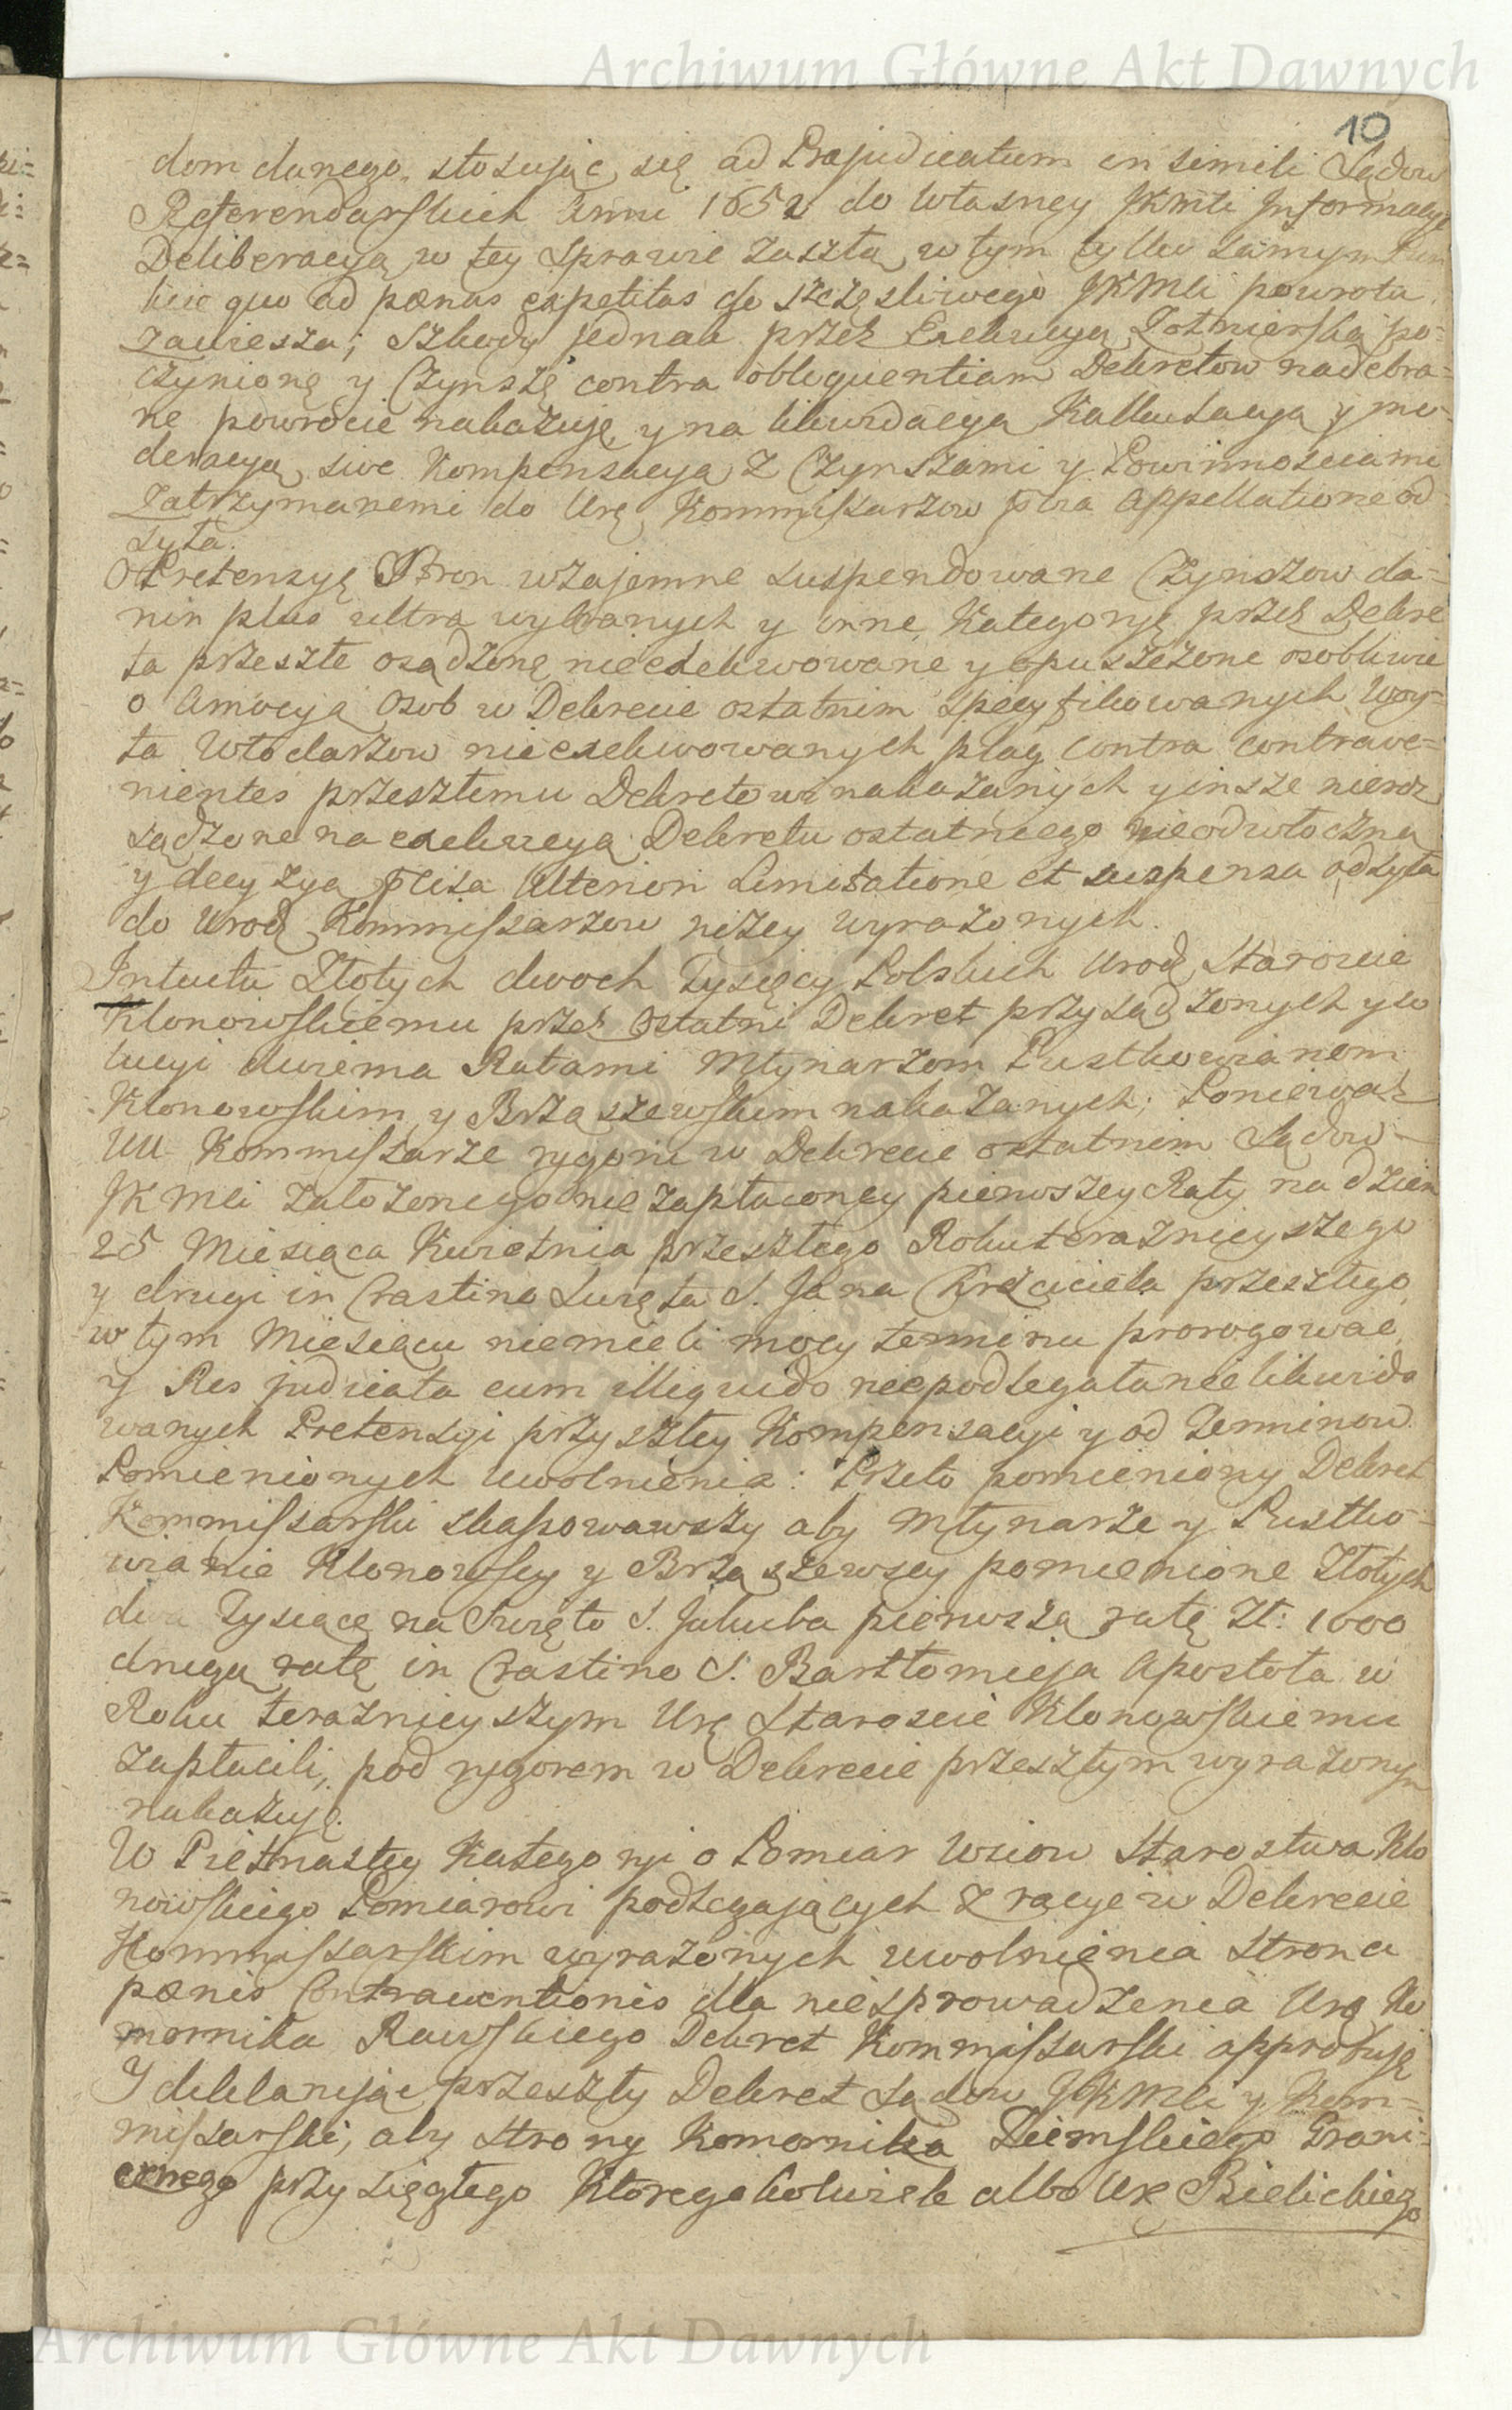 Archiwum Główne Akt Dawnych
10
dom danego, stosując się ad Praejudicatum in simili Sądow
Referendarskich Anni 1652 do własney JKMci Informacyi
Deliberacyą w tey sprawie zaszłą w tym tylko samym Pun
kcie quo ad pœnas expetitas do szczęsliwego JKMci powrotu
zawiesza; Szkody jednak przez Exekucyą Żołnierską po=
czynionę y Czynszę contra obloquentiam Dekretow nadebra=
ne powrocie nakazuję y na likwidacyą Kalkulacyą y mo=
deracyą sive Kompensacyą z Czynszami y Powinnosciami
Zatrzymanemi do Urę Kommissarzow Appellatione od
syła.
O Pretensyę Stron wzajemne suspendowane Czynszow da=
nin plus ultra wybranych y inne Kategoryę przez Dekre
ta przeszłe osądzonę nieexekwowane y opuszczone osobliwie
o Amocyą Osob w Dekrecie ostatnim specyfikowanych Woy=
ta Włodarzow nieexekwowanych plag contra contrave=
nientes przeszłemu Dekretowi nakazanych y insze nieroz
sądzone na exekucyą Dekretu ostatniego nieodwłoczną
y decyzyą ulteriori Limitatione et suspensa odsyła
do Urodz Kommissarzow niżey wyrażonych.
Intuitu Złotych dwoch Tysięcy Polskich Urodz Staroscie
Klonowskiemu przez Ostatni Dekret przysądzonych y so
lucyi dwiema Ratami Młynarzom Pustkowianom
Klonowskim y Brzaszewskim nakazanych; Ponieważ
UU Kommissarze rygoru w Dekrecie ostatnim Sądow
JKMci założonego niezapłaconey pierwszey Raty na dzien
25 Miesiąca Kwietnia przeszłego Roku teraznieyszego
y drugi in Crastino Swięta S. Jana Chrzciciela przeszłego
w tym Miesiącu niemieli mocy terminu prorogować
y Res judicata cum illiquido niepodlegała nielikwido
wanych Pretensyi przyszłey Kompensacyi y od Terminow
Pomienionych uwolnienia: Przeto pomieniony Dekret
Kommissarski skassowawszy aby Młynarze y Pustko=
wianie Klonowscy y Brzaszewscy pomienione Złotych
dwa Tysiące na Swięto S. Jakuba pierwszą ratę Zł: 1000
drugą ratę in Crastino S. Bartłomieja Apostoła w
Roku teraznieyszym Urę Staroscie Klonowskiemu
zapłacili, pod rygorem w Dekrecie przeszłym wyrażonym
nakazuję.
W Piętnastey Kategoryi o Pomiar Wsiow Starostwa Klo
nowskiego Pomiarowi podlegających z racyi w Dekrecie
Kommissarskim wyrażonych uwolnienia Strona
pœnis Contraventionis dla niesprowadzenia Urę Ko
mornika Rawskiego Dekret Kommissarski approbuję
I deklarując przeszły Dekret Sądow JKMci y Kom=
missarski, aby Strony Komornika Ziemskiego Grani=
cznego przysięgłego Ktoregokolwiek albo Urę Bielickiego
Archiwum Główne Akt Dawnych